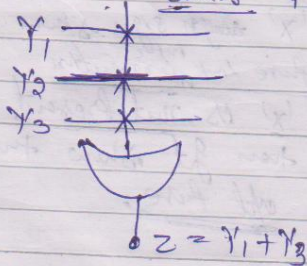 Y1
Y2
Y3
Z = Y1 + Y3